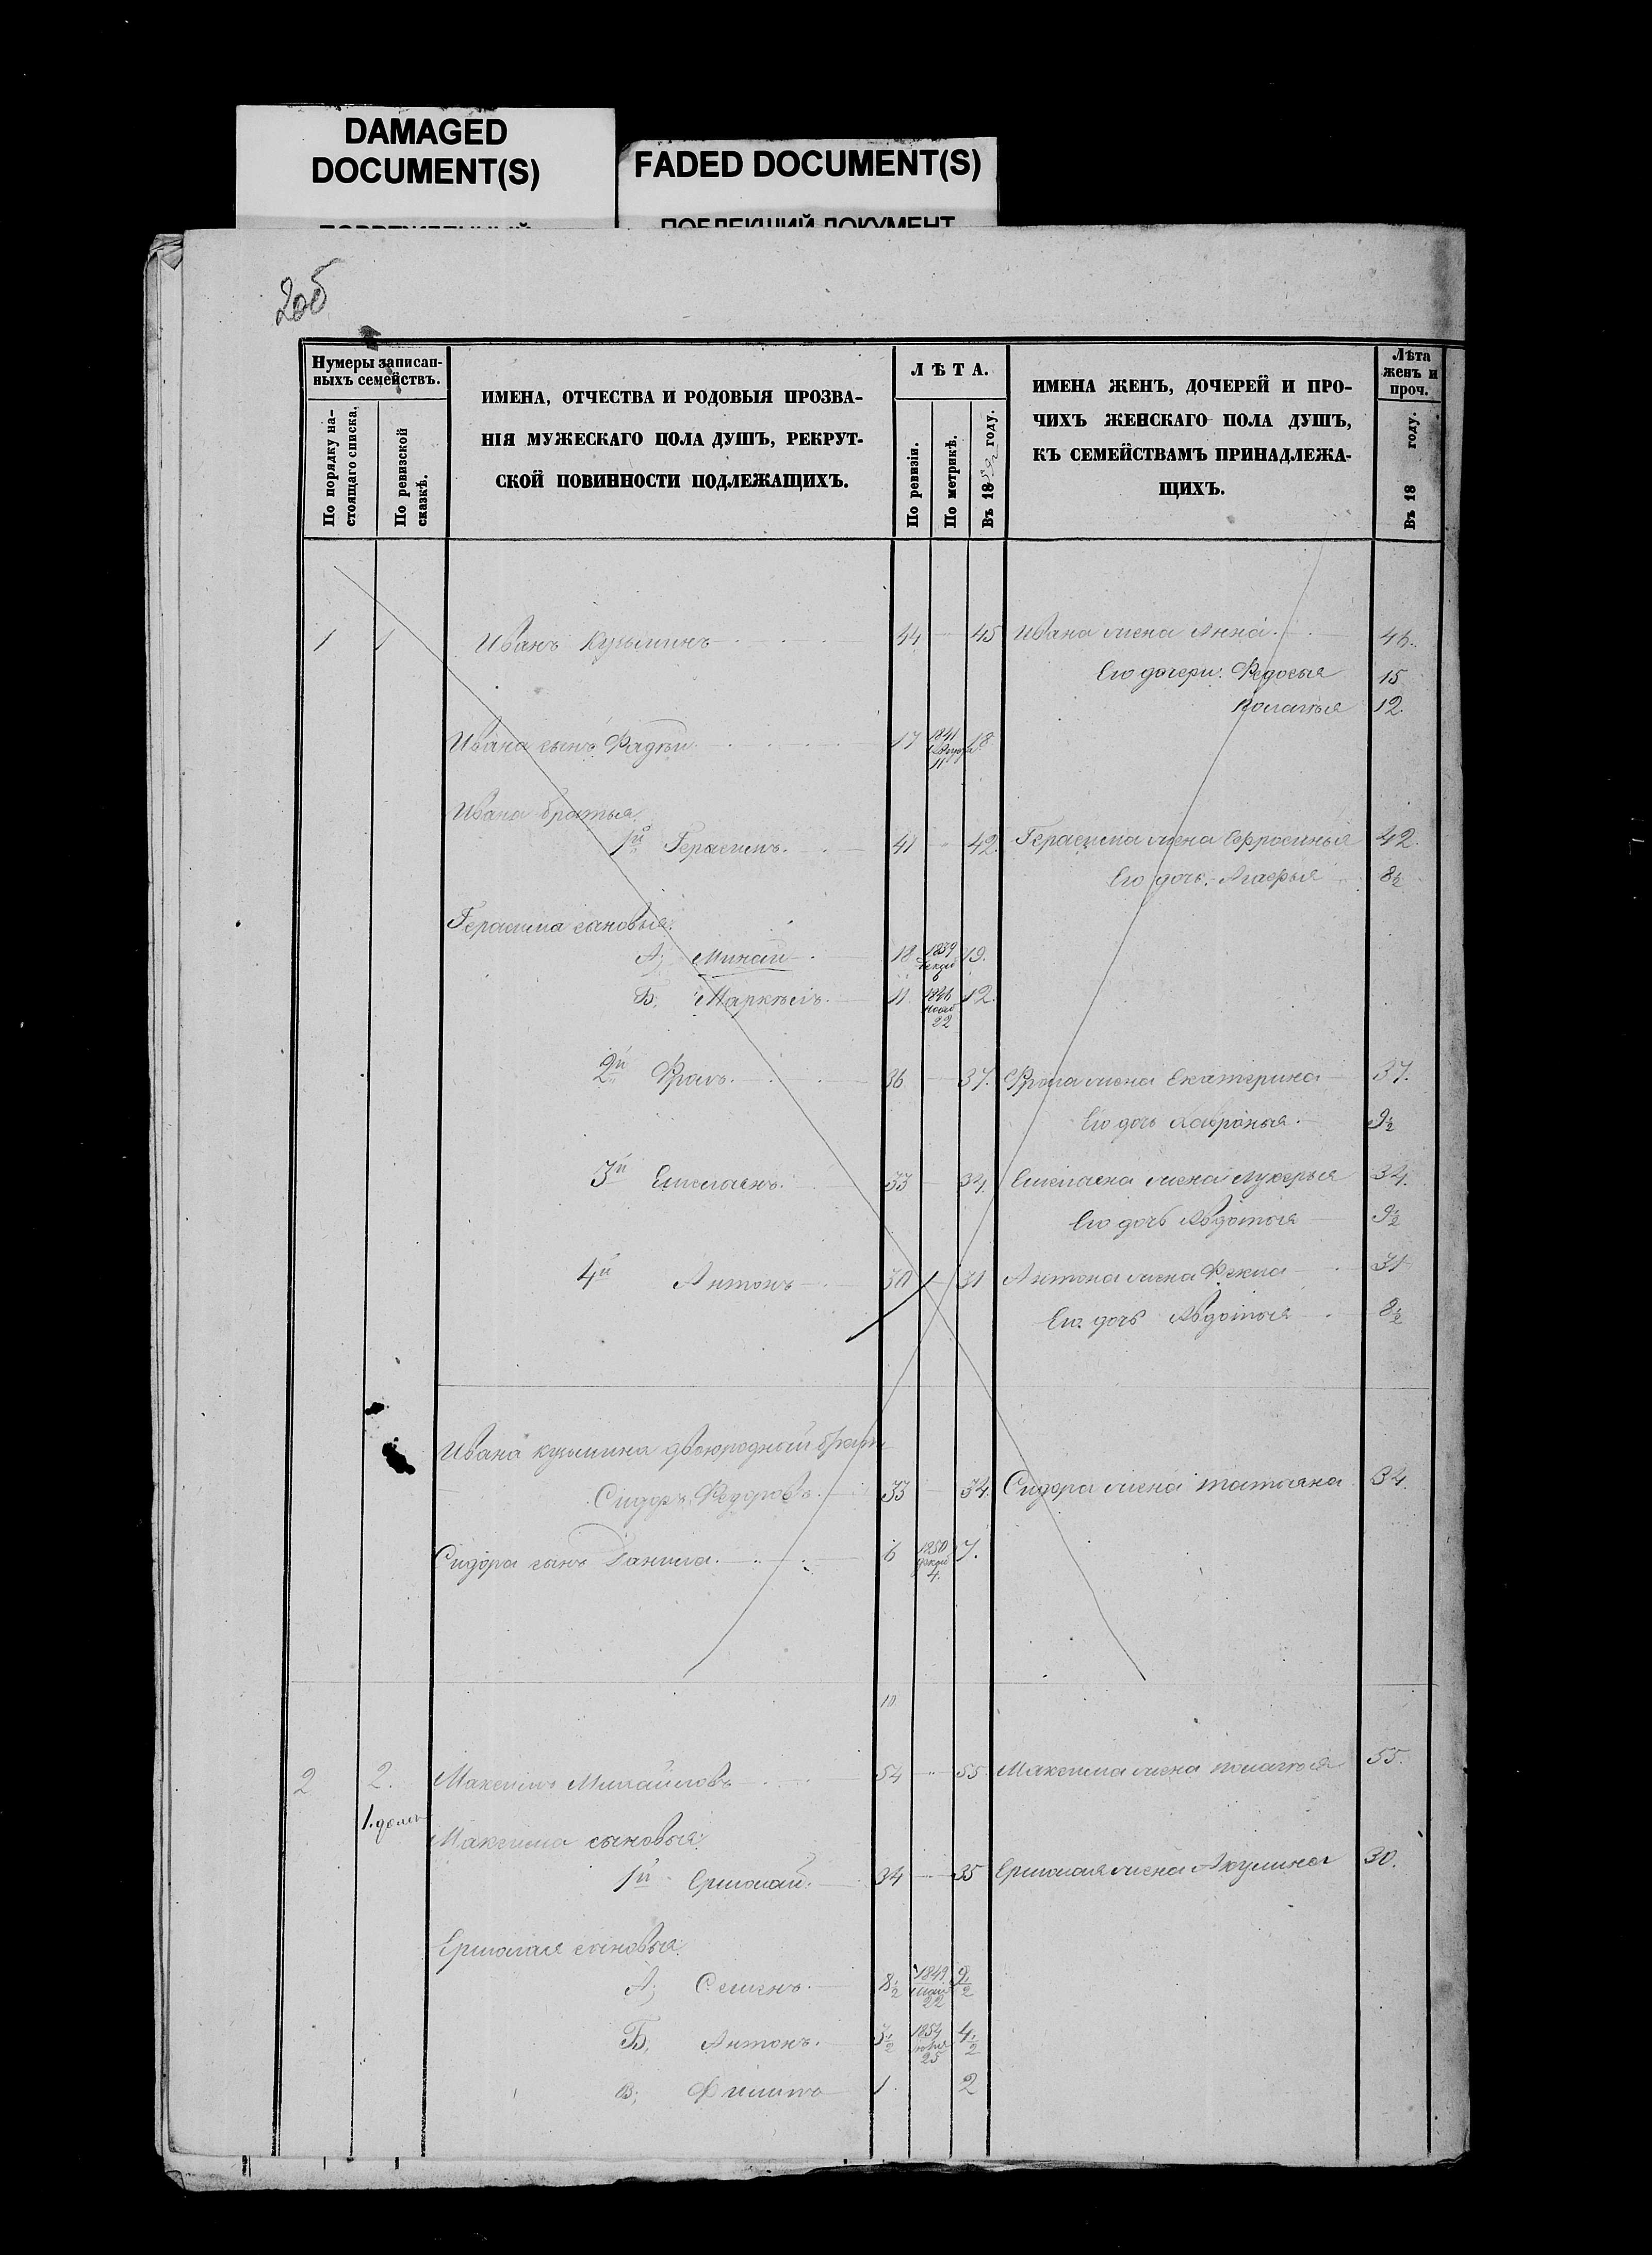 DAMAGED
DOCUMENT(S)
FADED DOCUMENT(S)
ПОБЛЕКШИЙ ДОКУМЕНТ
Нумеры записан-
ныхъ семействъ.
По порядку на-
стоящаго списка.
По ревизской
сказкѣ.
ИМЕНА, ОТЧЕСТВА И РОДОВЫЯ ПРОЗВА-
НІЯ МУЖЕСКАГО ПОЛА ДУШЪ, РЕКРУТ-
СКОЙ ПОВИННОСТИ ПОДЛЕЖАЩИХЪ.
ЛѢТА.
По ревизіи.
По метрикѣ.
Въ 18 году.
ИМЕНА ЖЕНЪ, ДОЧЕРЕЙ И ПРО-
ЧИХЪ ЖЕНСКАГО ПОЛА ДУШЪ,
КЪ СЕМЕЙСТВАМЪ ПРИНАДЛЕЖА-
ЩИХЪ.
Лѣта
женъ и
проч.
Въ 18 году.
1 1 Иванъ Кузьминъ 44 45 Ивана жена Анна 46.
Его дочери: Федосья 15
Полагья 12.
Ивана сынъ Фадѣй 17 1841 11 18
Ивана братья
1й Герасимъ. 41 42. Герасима жена Ефросинья 42.
Его дочь Агафья 8½
Герасима сыновья:
А; Минай 18 1839 декаб 6 19.
Б; Маркѣлъ. 11 1846 нояб 22 12.
2й Фролъ. 36 37. Фрола жена Екатерина 37.
Его дочь 9½
3й Емельянъ. 33 34. Емельяна жена Лукерья 34.
Его дочь Авдотья 9½
4й Антонъ 30 31 Антона жена Фекла 31
Его дочь Авдотья 8½
Ивана Кузьмина двоюродный братъ
Сидоръ Федоровъ. 33 34. Сидора жена Татьяна 34.
Сидора сынъ Данила. 6 1850 декаб 4. 7.
10
2 2. Максимъ Михайловъ 54 55 Максима жена Полагья 55.
Максима сыновья:
1й Ермолай. 34 35 Ермолая жена Акулина 30.
Ермолая сыновья:
А; Семенъ. 8½ 1849 мая 22 9½
Б; Антонъ. 3½ 1854 25 4½
В; Филипъ 1 2